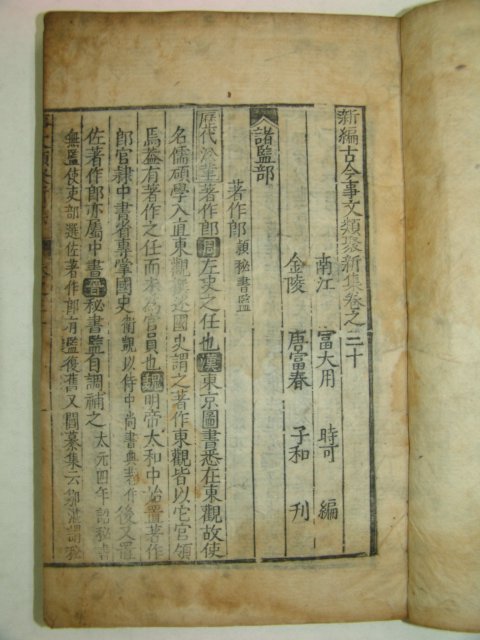 新編古今事文類聚新集卷之三十
南江 富大用 時可 編
金陵 唐富春 子和 刊
諸監部
著作郎 隷秘書監
歷代沿革著作郎周左史之任也漢東京圖書悉在東觀故使
名儒碩學入直東觀撰述國史謂之著作東觀皆以它官領
焉蓋有著作之任而未為官員也魏明帝太和中始置著作
郎官隷中書省專掌國史衛覬以侍中尚書典著作後又置
佐著作郎亦屬中書晉秘書監自調補之太元四年詔秘書
無監使吏部選佐著作郎有監復舊又閻纂集云鄒湛謂秘